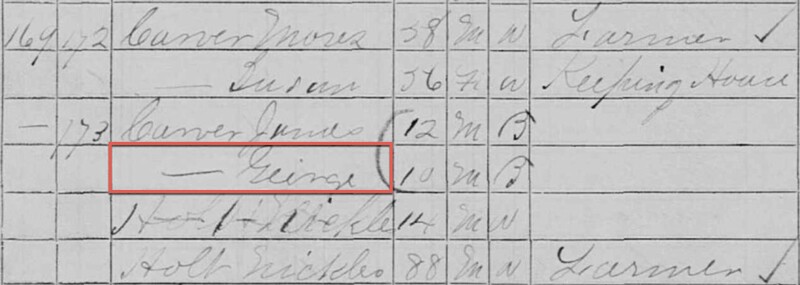 169 172 Carver Moses 58 M W Farmer ✓
— Susan 56 F W Keeping House
— 173 Carver James 12 M B
— George 10 M B
14 M W
Holt 88 M W Farmer ✓